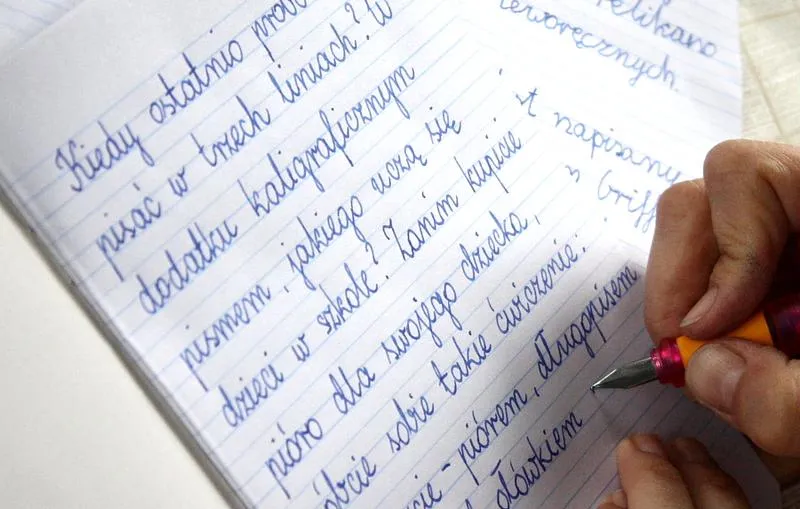 Kiedy ostatnio
pisać w trzech liniach? W
dodatku kaligraficznym
pismem, jakiego uczą się
dzieci w szkole? Zanim kupicie
pióro dla swojego dziecka,
sobie takie ćwiczenie:
piórem, długopisem
ołówkiem
Pelikano
leworęcznych.
napisany
Griff